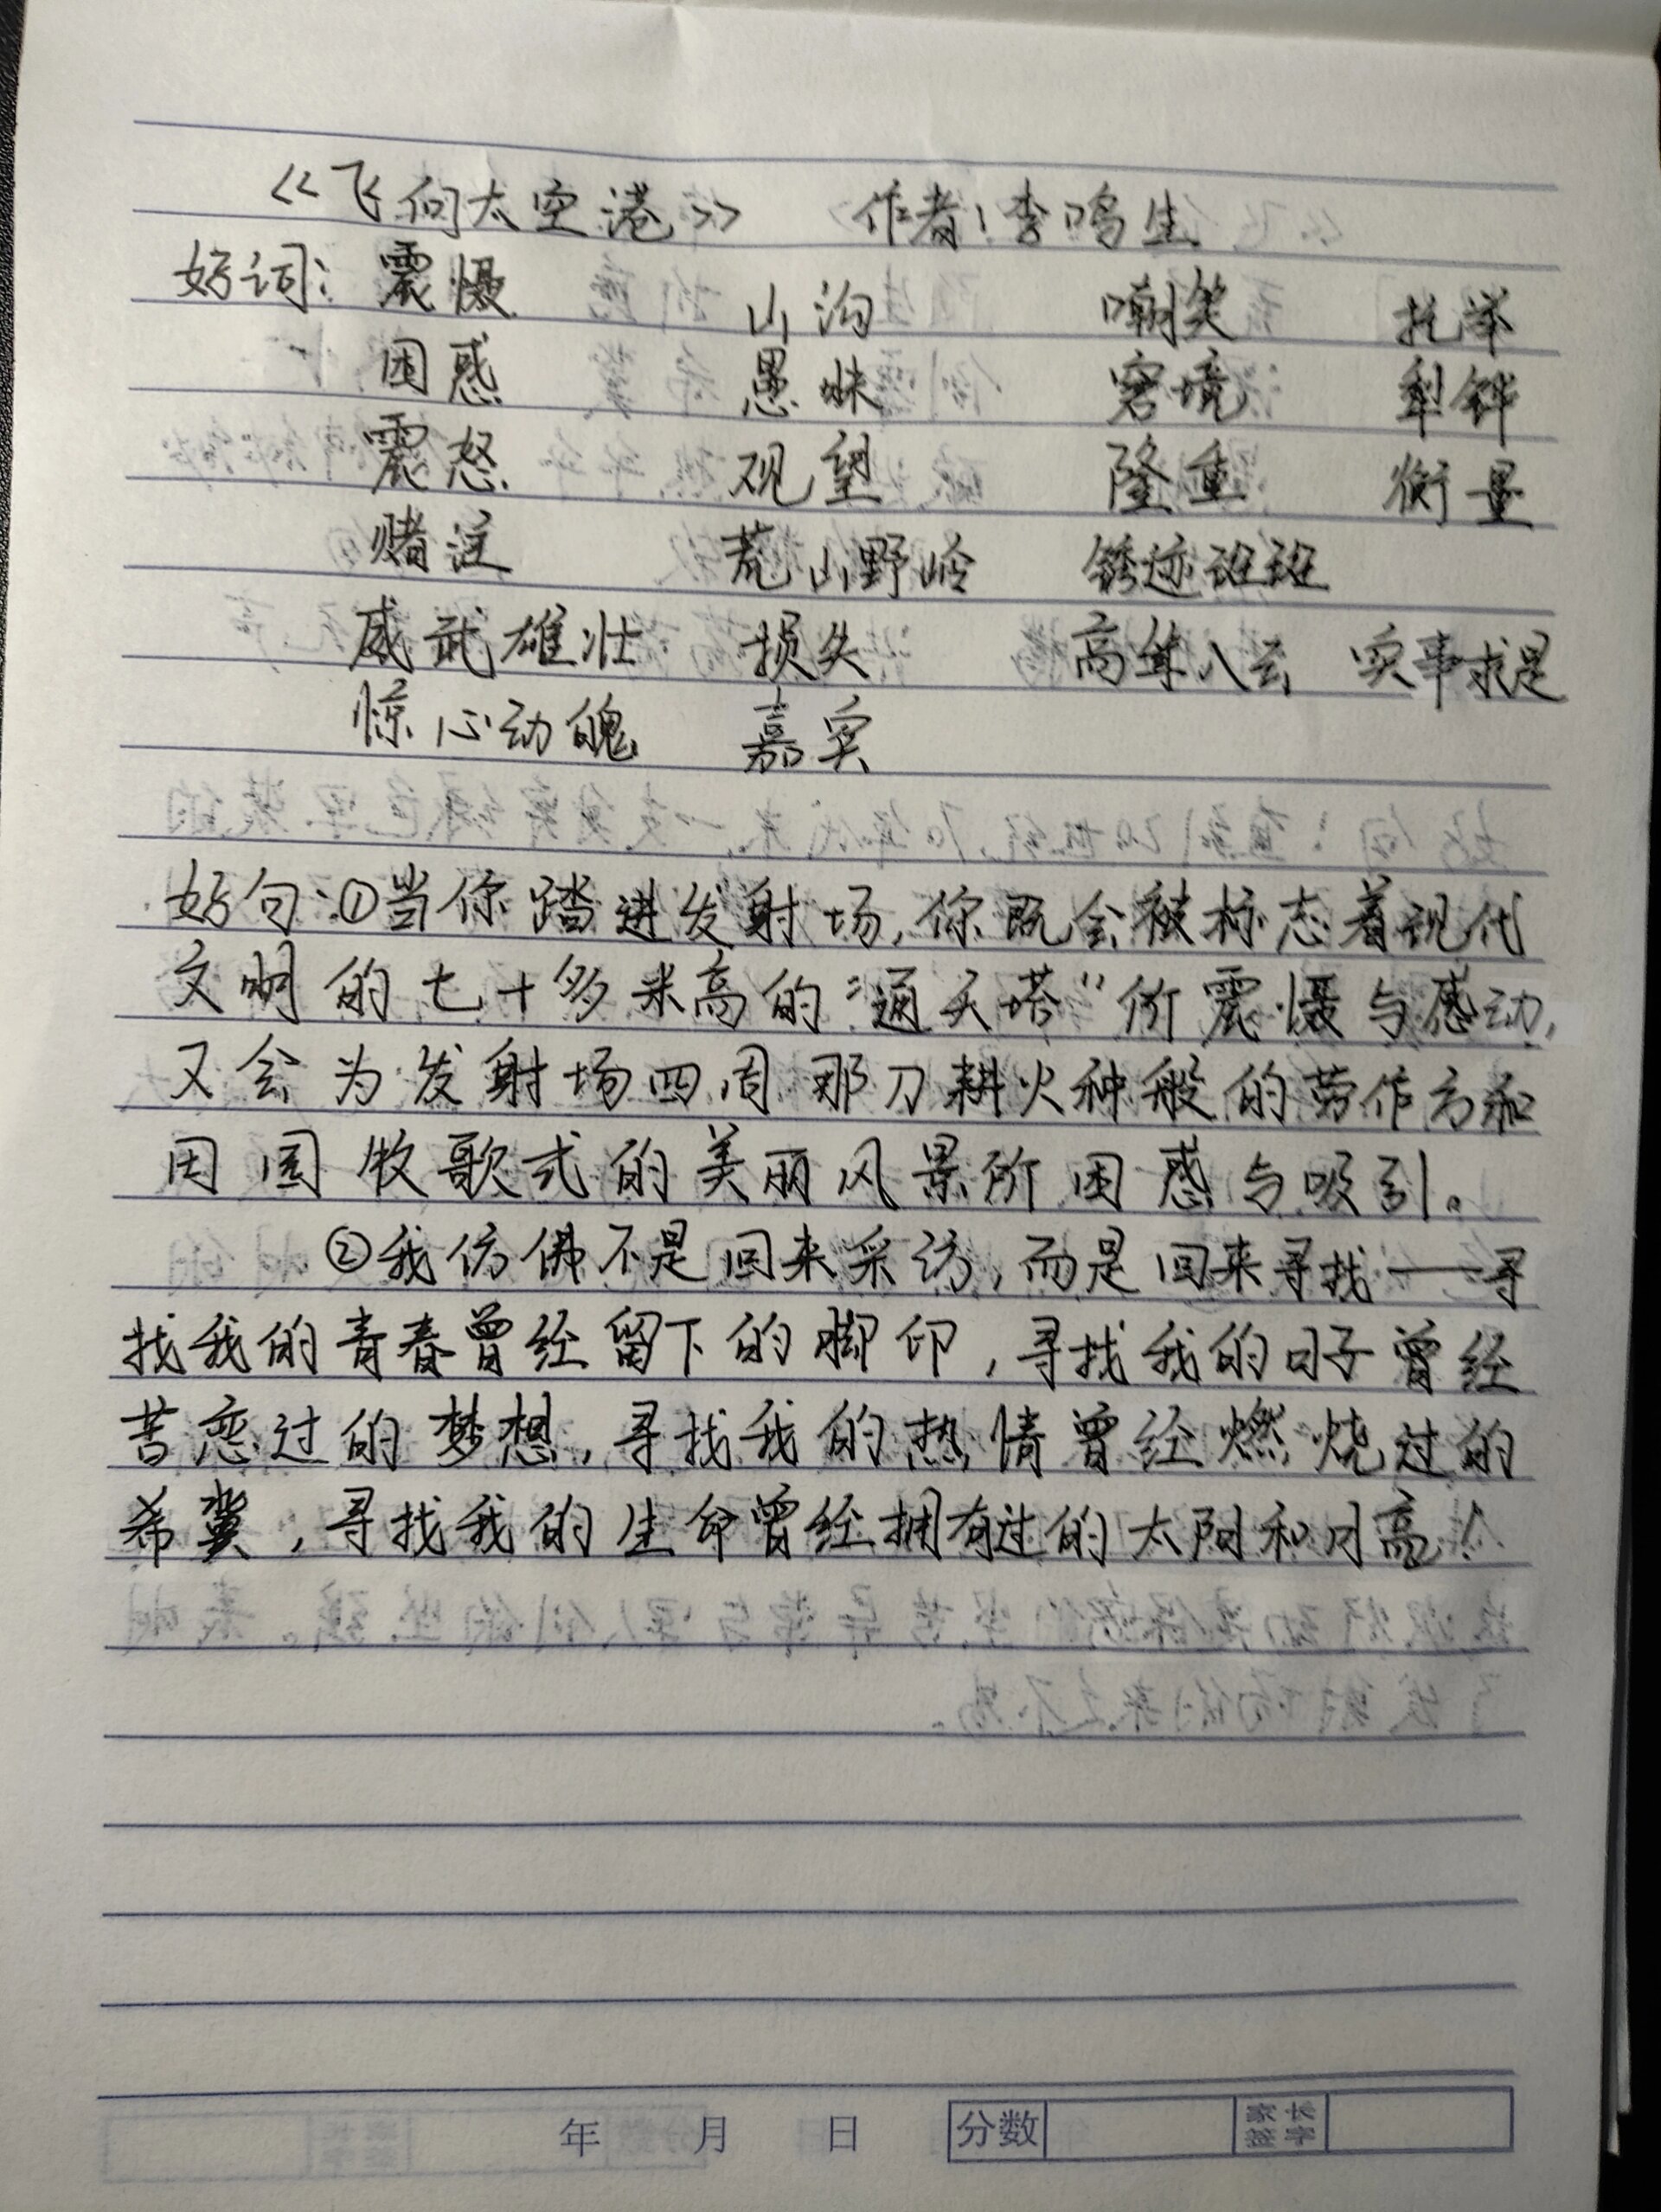 《飞向太空港》 作者：李鸣生
好词：震慑 山沟 嘲笑 托举
困惑 愚昧 窘境 犁铧
震怒 观望 隆重 衡量
赌注 荒山野岭 锈迹班班
威武雄壮 损失 高耸入云 实事求是
惊心动魄 嘉宾
好句：①当你踏进发射场，你既会被标志着现代
文明的七十多米高的“通天塔”所震慑与感动，
又会为发射场四周那刀耕火种般的劳作方和
田园牧歌式的美丽风景所困惑与吸引。
②我仿佛不是回来采访，而是回来寻找——寻
找我的青春曾经留下的脚印，寻找我的日子曾经
苦恋过的梦想，寻找我的热情曾经燃烧过的
希冀，寻找我的生命曾经拥有过的太阳和月亮！
年 月 日 分数 家长签字